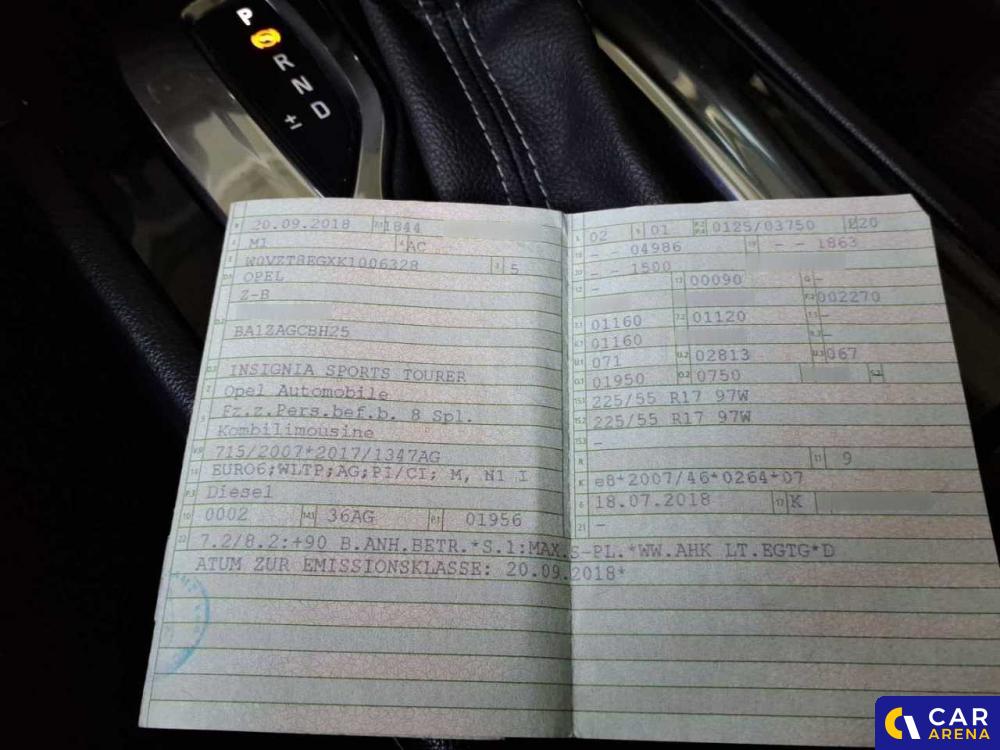 P
R
N
D
+/-
20.09.2018 1844
M1 AC
W0VZT8EGXK1006328 5
OPEL
Z-B
BA1ZAGCBH25
INSIGNIA SPORTS TOURER
Opel Automobile
Fz.z.Pers.bef.b. 8 Spl.
Kombilimousine
715/2007*2017/1347AG
EURO6;WLTP;AG;PI/CI; M, N1 I
Diesel
0002 36AG 01956
02 01 0125/03750 220
- - 04986 - - 1863
- - 1500
- 00090 -
002270
01160 01120 -
01160 -
071 02813 067
01950 0750
225/55 R17 97W
225/55 R17 97W
-
9
e8*2007/46*0264*07
18.07.2018 K
-
7.2/8.2:+90 B.ANH.BETR.*S.1:MAX.5-PL.*WW.AHK LT.EGTG*D
ATUM ZUR EMISSIONSKLASSE: 20.09.2018*
CAR
ARENA